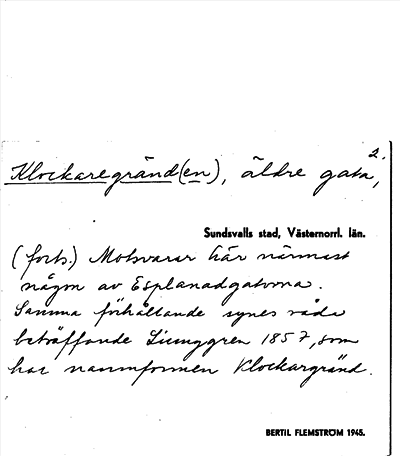 2.
Klockaregränd(en), äldre gata,
Sundsvalls stad, Västernorrl. län.
(forts.) Motsvarar här närmast
någon av Esplanadgatorna.
Samma förhållande synes råda
beträffande Ljunggren 1857, som
har namnformen Klockargränd.
BERTIL FLEMSTRÖM 1945.